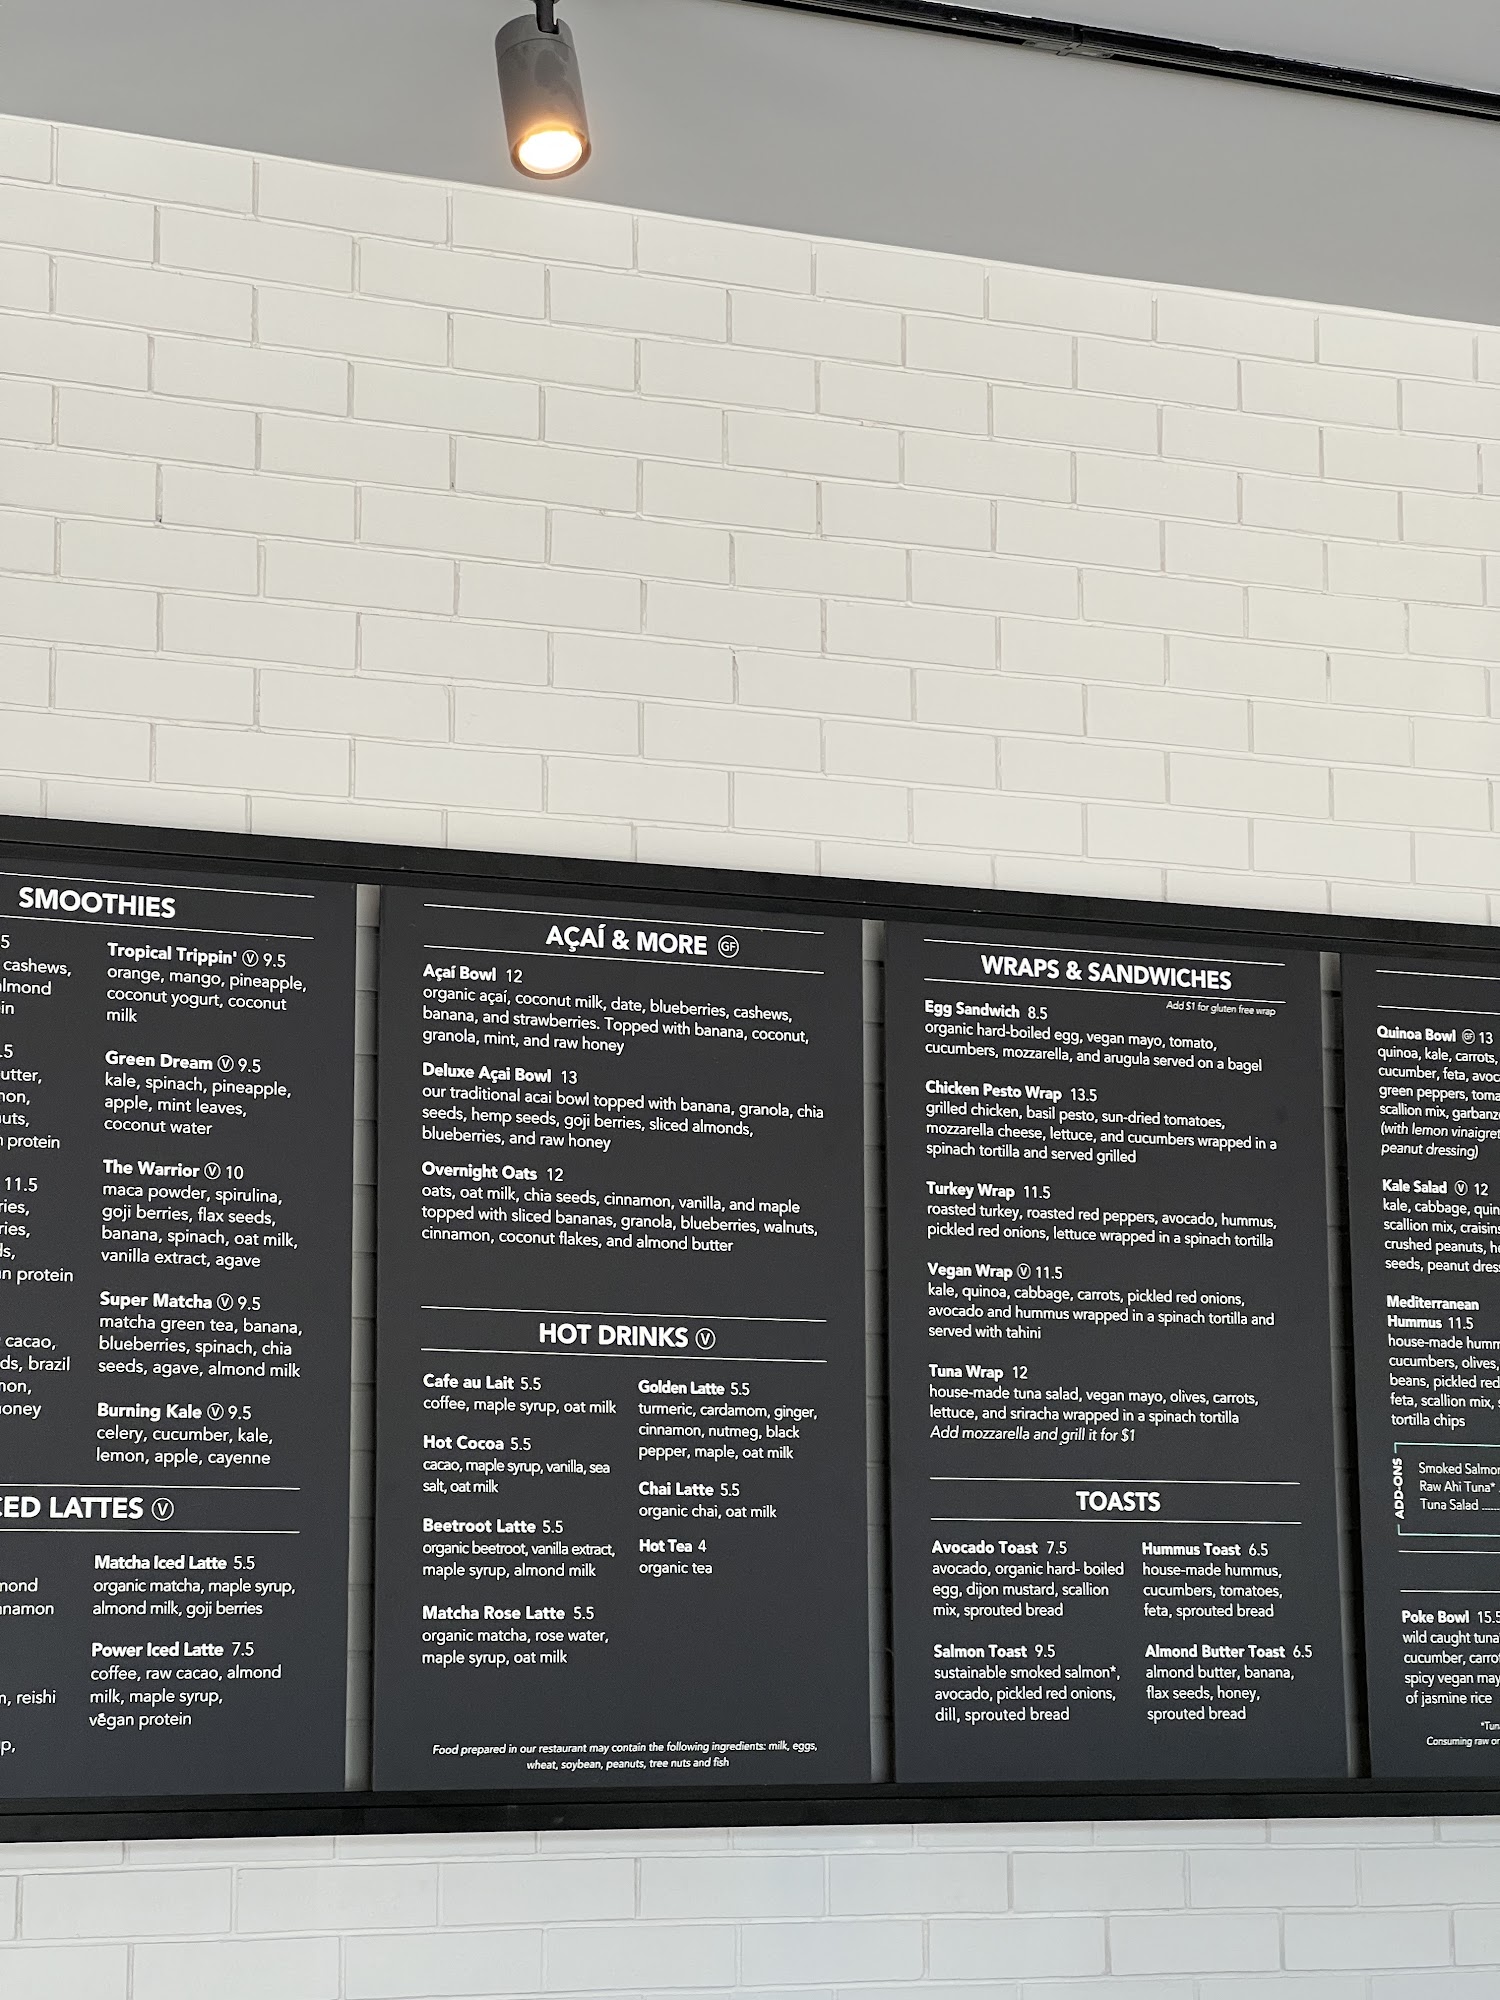 SMOOTHIES
5
cashews,
almond
.5
11.5
cacao,
brazil
Tropical Trippin' Ⓥ 9.5
orange, mango, pineapple,
coconut yogurt, coconut
milk
Green Dream Ⓥ 9.5
kale, spinach, pineapple,
apple, mint leaves,
coconut water
The Warrior Ⓥ 10
maca powder, spirulina,
goji berries, flax seeds,
banana, spinach, oat milk,
vanilla extract, agave
Super Matcha Ⓥ 9.5
matcha green tea, banana,
blueberries, spinach, chia
seeds, agave, almond milk
Burning Kale Ⓥ 9.5
celery, cucumber, kale,
lemon, apple, cayenne
CED LATTES Ⓥ
reishi
Matcha Iced Latte 5.5
organic matcha, maple syrup,
almond milk, goji berries
Power Iced Latte 7.5
coffee, raw cacao, almond
milk, maple syrup,
vegan protein
AÇAÍ & MORE GF
Açaí Bowl 12
organic açaí, coconut milk, date, blueberries, cashews,
banana, and strawberries. Topped with banana, coconut,
granola, mint, and raw honey
Deluxe Açai Bowl 13
our traditional acai bowl topped with banana, granola, chia
seeds, hemp seeds, goji berries, sliced almonds,
blueberries, and raw honey
Overnight Oats 12
oats, oat milk, chia seeds, cinnamon, vanilla, and maple
topped with sliced bananas, granola, blueberries, walnuts,
cinnamon, coconut flakes, and almond butter
HOT DRINKS Ⓥ
Cafe au Lait 5.5
coffee, maple syrup, oat milk
Hot Cocoa 5.5
cacao, maple syrup, vanilla, sea
salt, oat milk
Beetroot Latte 5.5
organic beetroot, vanilla extract,
maple syrup, almond milk
Matcha Rose Latte 5.5
organic matcha, rose water,
maple syrup, oat milk
Golden Latte 5.5
turmeric, cardamom, ginger,
cinnamon, nutmeg, black
pepper, maple, oat milk
Chai Latte 5.5
organic chai, oat milk
Hot Tea 4
organic tea
Food prepared in our restaurant may contain the following ingredients: milk, eggs,
wheat, soybean, peanuts, tree nuts and fish
WRAPS & SANDWICHES
Add $1 for gluten free wrap
Egg Sandwich 8.5
organic hard-boiled egg, vegan mayo, tomato,
cucumbers, mozzarella, and arugula served on a bagel
Chicken Pesto Wrap 13.5
grilled chicken, basil pesto, sun-dried tomatoes,
mozzarella cheese, lettuce, and cucumbers wrapped in a
spinach tortilla and served grilled
Turkey Wrap 11.5
roasted turkey, roasted red peppers, avocado, hummus,
pickled red onions, lettuce wrapped in a spinach tortilla
Vegan Wrap Ⓥ 11.5
kale, quinoa, cabbage, carrots, pickled red onions,
avocado and hummus wrapped in a spinach tortilla and
served with tahini
Tuna Wrap 12
house-made tuna salad, vegan mayo, olives, carrots,
lettuce, and sriracha wrapped in a spinach tortilla
Add mozzarella and grill it for $1
TOASTS
Avocado Toast 7.5
avocado, organic hard- boiled
egg, dijon mustard, scallion
mix, sprouted bread
Salmon Toast 9.5
sustainable smoked salmon*,
avocado, pickled red onions,
dill, sprouted bread
Hummus Toast 6.5
house-made hummus,
cucumbers, tomatoes,
feta, sprouted bread
Almond Butter Toast 6.5
almond butter, banana,
flax seeds, honey,
sprouted bread
Quinoa Bowl GF 13
quinoa, kale, carrots,
cucumber, feta, avoc
green peppers, toma
scallion mix, garbanz
(with lemon vinaigret
peanut dressing)
Kale Salad Ⓥ 12
kale, cabbage, quin
scallion mix, craisins
crushed peanuts, he
seeds, peanut dres
Mediterranean
Hummus 11.5
house-made humm
cucumbers, olives,
beans, pickled red
feta, scallion mix,
tortilla chips
ADD-ONS
Smoked Salmon
Raw Ahi Tuna*
Tuna Salad
Poke Bowl 15.5
wild caught tuna
cucumber, carro
spicy vegan may
of jasmine rice
*Tun
Consuming raw or